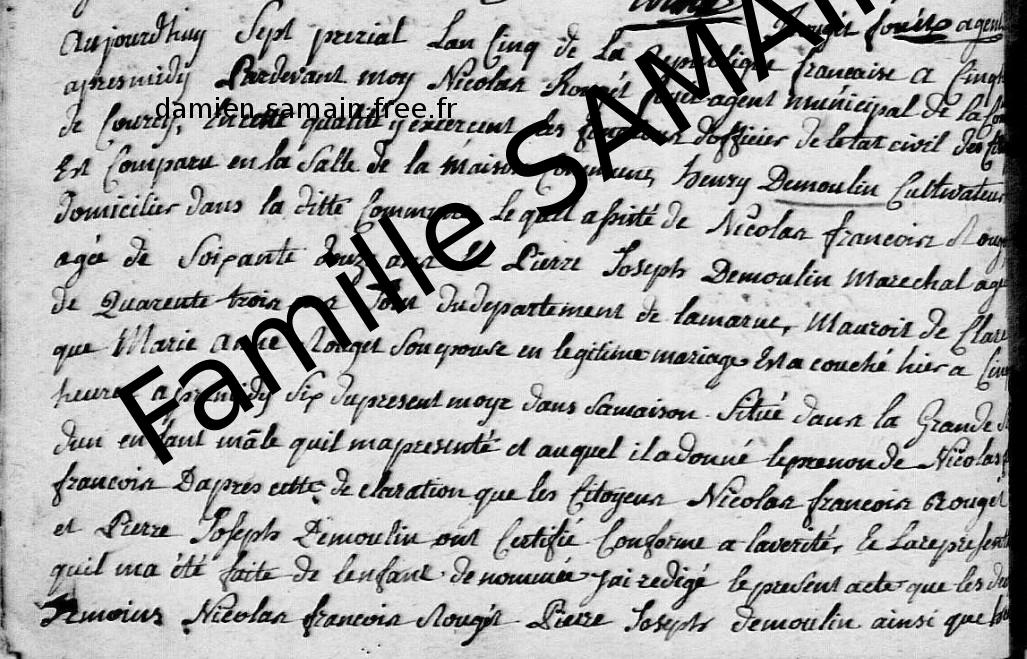 Rougét fouét agent
Aujourdhuy Sept prerial Lan Cinq de La Republique francaise a Cinq h
apresmidy Pardevant moy Nicolas Rougét fouet agent municipal de la Co
damien.samain.free.fr
de Courcy, En cette qualité y exercent les fonctions dofficier de letat civil des
Est Comparu en la Salle de la maison Commune, henry Demoulin Cultivateur
domicilier dans la ditte Commune Le quel assisté de Nicolas francois Roug
agée de Soixante douze ans Et Pierre Joseph Demoulin Marechal agé
de Quarente trois ans du departement de lamarne, Mauroit de Clare
que Marie anne Rouget Son epouse en legitime mariage Est a couché hier a Cinq
heures apremidy Six du present moye dans Samaison Situé dans la Grande
dun enfant mâle quil mapresenté et auquel il a donné leprenon de Nicolas
francois Dapres cette de claration que les Citoyens Nicolas francois Rougét
et Pierre Joseph Demoulin ont Certifié Conforme a laverité, Et Larepresent
quil ma été faite de lenfant denommée jai redigé le present acte que les deu
temoins Nicolas francois Rougét Pierre Joseph demoulin ainsi que
Famille SAMAI